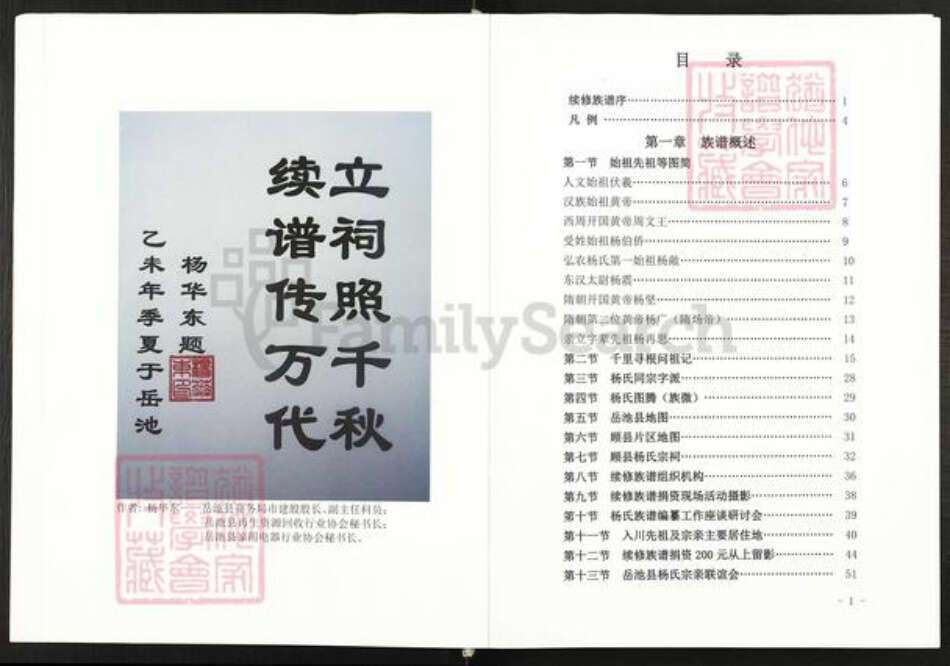 立祠照千秋
续谱传万代
杨华东题
乙未年季夏于岳池
作者：杨华东 岳池县商务局市建股股长、副主任科员；
岳池县再生资源回收行业协会秘书长；
岳池县家用电器行业协会秘书长。
目 录
续修族谱序 1
凡 例 4
第一章 族谱概述
第一节 始祖先祖等图简
人文始祖伏羲 6
汉族始祖黄帝 7
西周开国黄帝周文王 8
受姓始祖杨伯侨 9
弘农杨氏第一始祖杨敞 10
东汉太尉杨震 11
隋朝开国黄帝杨坚 12
隋朝第二位黄帝杨广（隋炀帝） 13
亲立字辈先祖杨再思 14
第二节 千里寻根问祖记 15
第三节 杨氏同宗字派 28
第四节 杨氏图腾（族徽） 29
第五节 岳池县地图 30
第六节 顾县片区地图 31
第七节 顾县杨氏宗祠 32
第八节 续修族谱组织机构 36
第九节 续修族谱捐资现场活动摄影 38
第十节 杨氏族谱编纂工作座谈研讨会 39
第十一节 入川先祖及宗亲主要居住地 40
第十二节 续修族谱捐资 200 元从上留影 44
第十三节 岳池县杨氏宗亲联谊会 51
- 1 -
FamilySearch